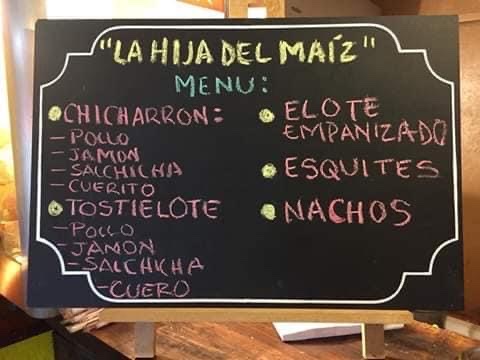 "LA HIJA DEL MAÍZ"
MENU:
CHICHARRON:
-POLLO
-JAMON
-SALCHICHA
-CUERITO
TOSTIELOTE
-POLLO
-JAMON
-SALCHICHA
-CUERO
ELOTE
EMPANIZADO
ESQUITES
NACHOS